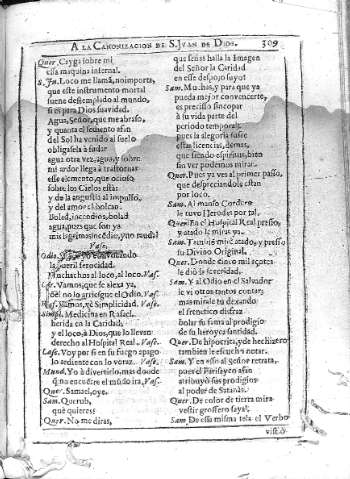 A LA CANONIZACION DE S. IVAN DE DIOS. 309
Quer. Cayga sobre mi
essa maquina infernal.
S. Ju. Loco me llamã, no importa,
que este instrumento mortal
fue destemplado al mundo,
si es para Dios suavidad.
Agua, Señor, que me abraso,
y quanta el sediento afan
del Sol ha venido al suelo
obligasela à sudar
agua otra vez, agua, y sobre
mi ardor llega à trastornar
esse elemento, que ocioso
sobre los Cielos està:
y de la angustia al impulso,
y del amor al
bolcan.
Boled, incendios, bolad
agua, pues que son ya
Vase.
Odio.
la fuerza ferocidad.
Muchachos al loco, al loco. Vas.
Car. Vamos, que se alexa ya,
no le arriesgue el Odio. Vas.
Raf. Vamos, vè Simplicidad. Vas.
Simpl. Medicina en Rafael,
herida en la Caridad,
y el loco à Dios, que lo llevan
derecho al Hospital Real. Vas.
Lasc. Voy por si en su fuego apago
lo ardiente con lo voraz. Vas.
Mund. Yo à divertirlo, mas donde
q̃ no encõtre el mũdo irà. Vas.
Quer. Samael, oye.
Sam. Querub,
què quieres?
Quer. No me diràs,
que señas halla la Imagen
del Señor la Caridad
en esse despojo suyo?
Sam. Muchas, y para que ya
pueda mejor convencerte,
es preciso sincopar
à su vida parte del
periodo temporal,
pues la alegoria sufre
estas licencias, demàs,
que siendo espiritus, bien
sin ver podemos mirar.
Quer. Pues ya vès al primer passo,
que despreciandole estàn
por loco.
Sam. Al manso Cordero
le tuvo Herodes por tal.
Quer. En el Hospital Real preso,
y atado le miras ya.
Sam. Tambiẽ mirè atado, y preso
su Divino Original.
Quer. Donde cinco mil açotes
le diò la ferocidad.
Sam. Y al Odio en el Salvador
le vi otros tantos contar;
mas mirale tu dexando
el frenetico disfraz
bolar su fama al prodigio
de su heroyca santidad.
Quer. De hipocrita, y de hechizero
tambien le escucho notar.
Sam. Y en esso al Señor retrata,
pues el Pariseyco afan
atribuyò sus prodigios
al poder de Satanàs.
Quer. De color de tierra miro
vestir grossero sayal.
Sam. De essa misma tela el Verbo